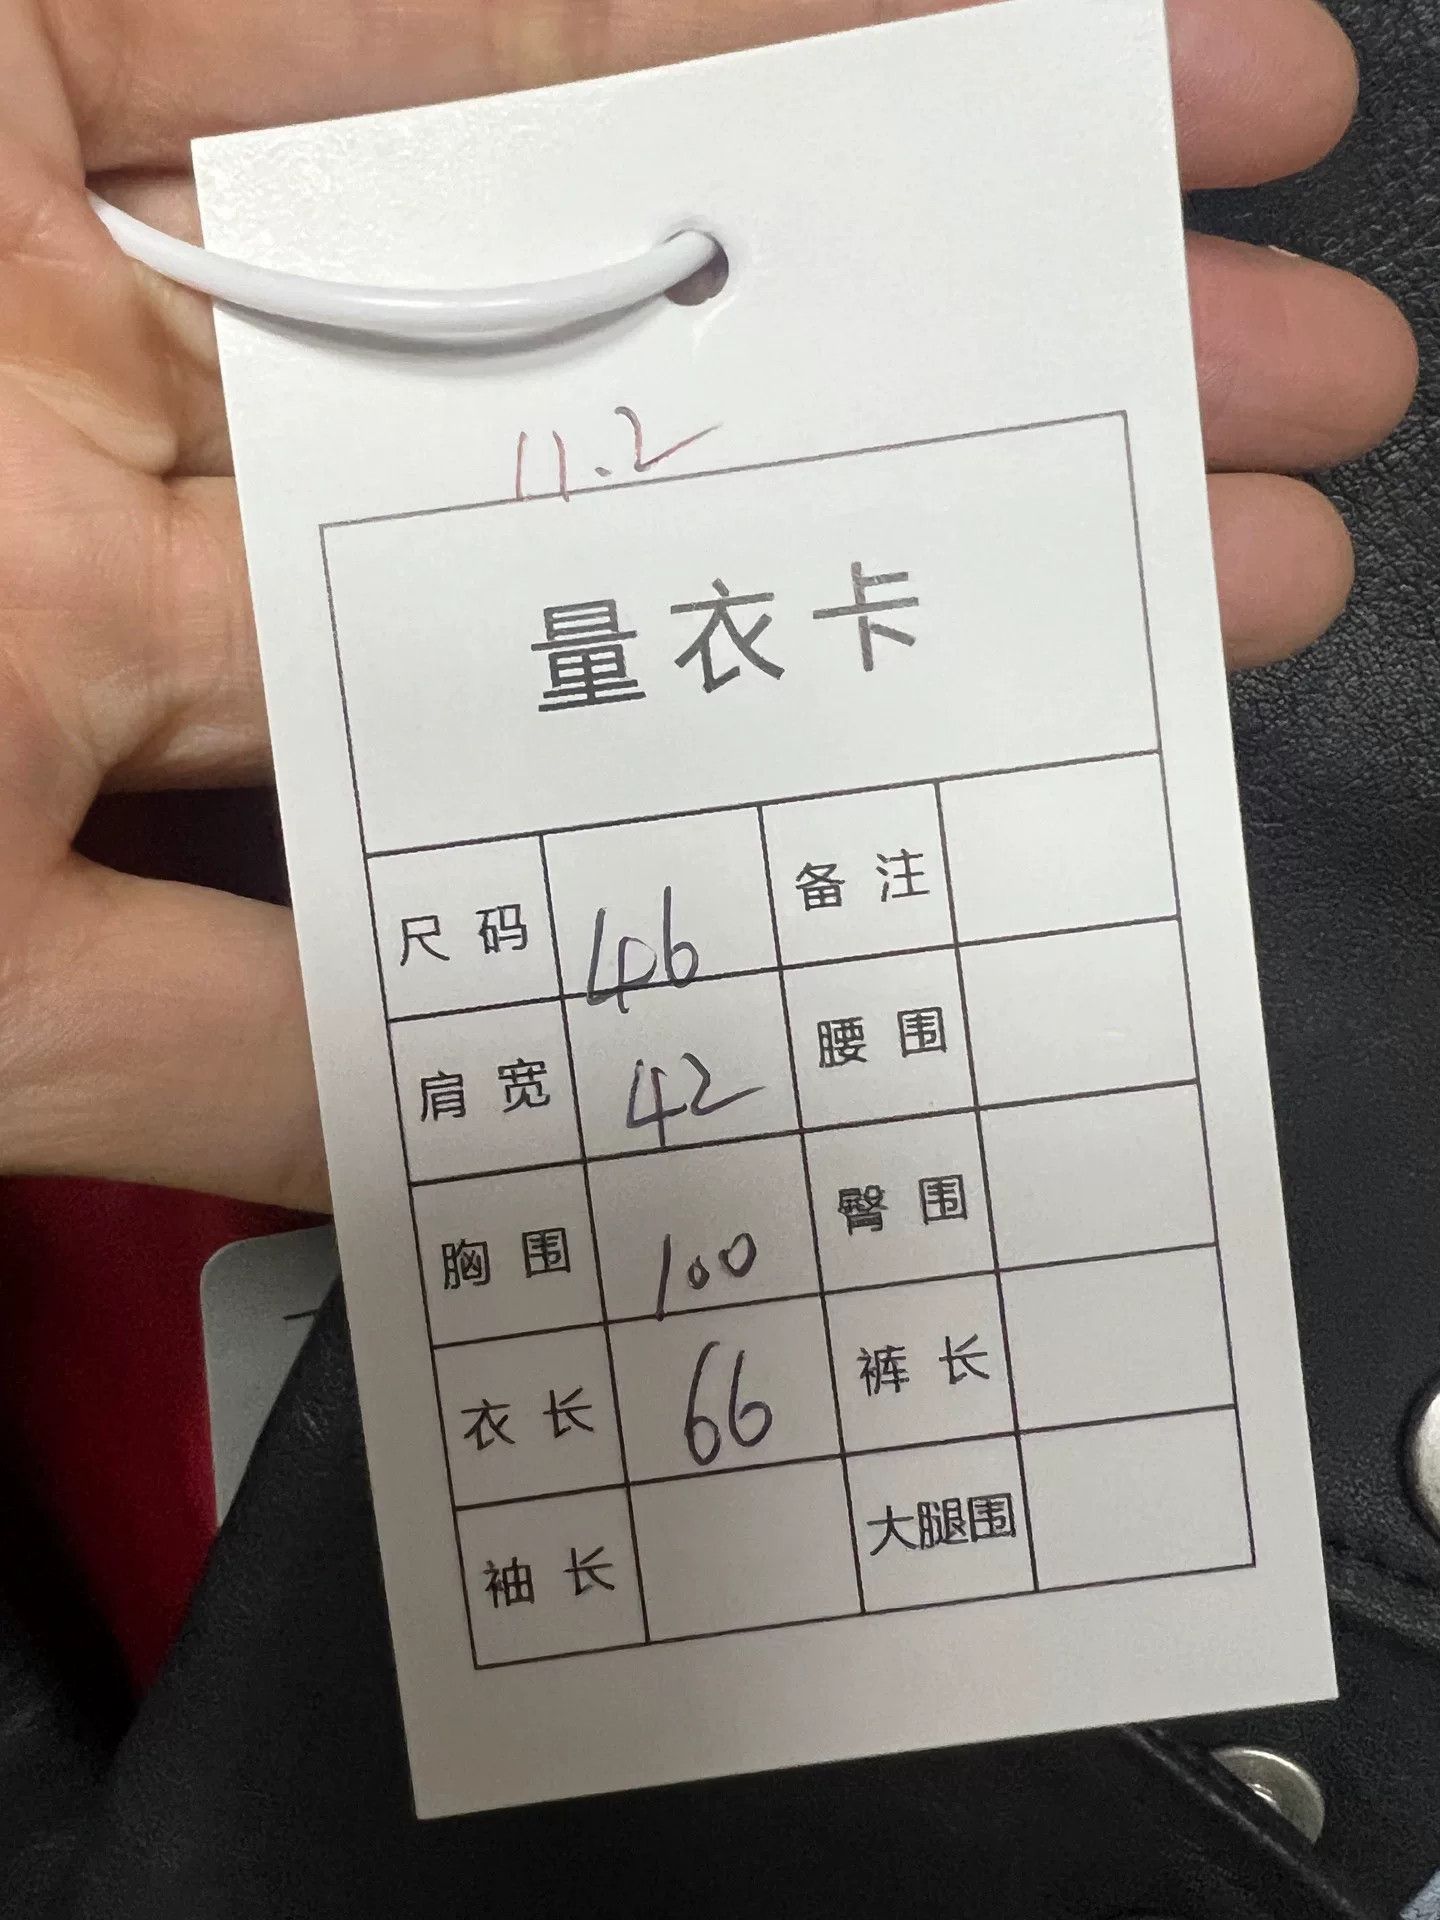 11.2
量衣卡
尺码 46 备注
肩宽 42 腰围
胸围 100 臀围
衣长 66 裤长
袖长 大腿围